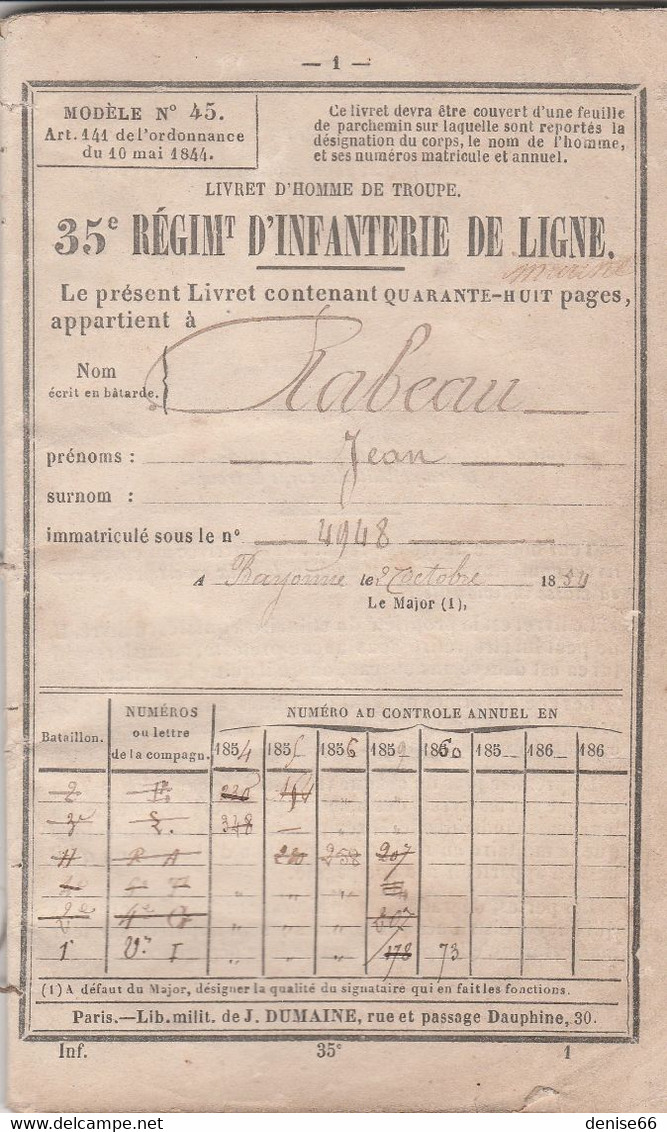 — 1 —
MODÈLE N° 45.
Art. 141 de l'ordonnance
du 10 mai 1844.
Ce livret devra être couvert d'une feuille
de parchemin sur laquelle sont reportés la
désignation du corps, le nom de l'homme,
et ses numéros matricule et annuel.
LIVRET D'HOMME DE TROUPE.
35e RÉGIMT D'INFANTERIE DE LIGNE.
Le présent Livret contenant QUARANTE-HUIT pages,
appartient à
Nom
écrit en bâtarde.
Rabeau
prénoms : Jean
surnom :
immatriculé sous le n° 4948
A Bayonne le 27 octobre 1854
Le Major (1),
Bataillon.
NUMÉROS
ou lettre
de la compagn.
NUMÉRO AU CONTROLE ANNUEL EN
1854 1855 1856 1859 1860 185 186 186
2
3e 2. 348
258 207
2e 4e 207
1r Vrs I 178 73
(1) A défaut du Major, désigner la qualité du signataire qui en fait les fonctions.
Paris.—Lib. milit. de J. DUMAINE, rue et passage Dauphine, 30.
Inf. 35e 1
denise66